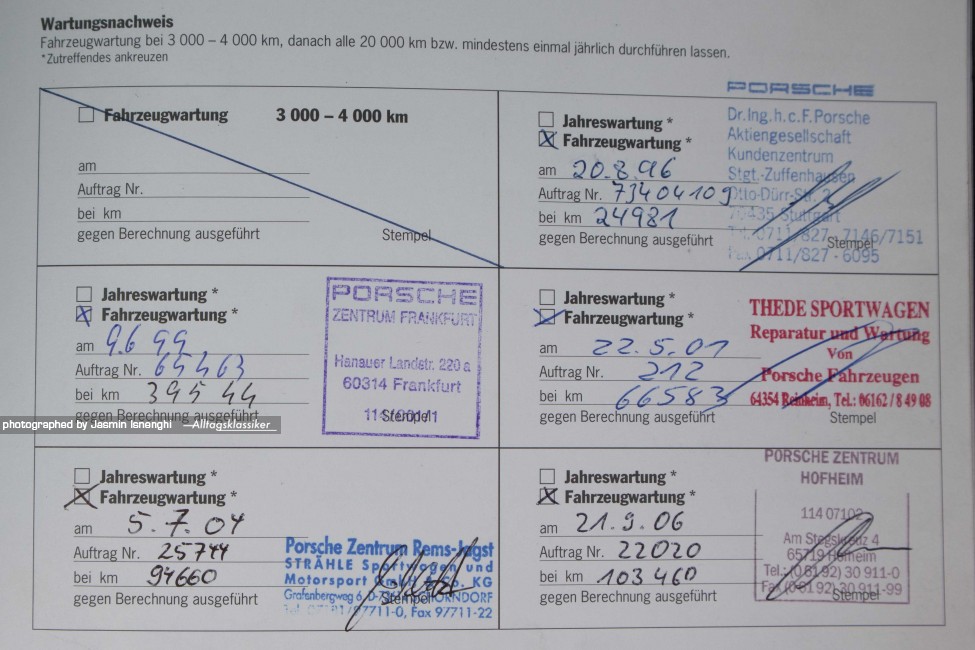 Wartungsnachweis
Fahrzeugwartung bei 3 000 – 4 000 km, danach alle 20 000 km bzw. mindestens einmal jährlich durchführen lassen.
*Zutreffendes ankreuzen
Fahrzeugwartung 3 000 – 4 000 km
am
Auftrag Nr.
bei km
gegen Berechnung ausgeführt
Stempel
Jahreswartung *
Fahrzeugwartung *
am 20.8.96
Auftrag Nr. 73404109
bei km 24981
gegen Berechnung ausgeführt
Stempel
PORSCHE
Dr.Ing.h.c.F.Porsche
Aktiengesellschaft
Kundenzentrum
Stgt.-Zuffenhausen
Otto-Dürr-Str.
70435 Stuttgart
0711/827-7146/7151
Fax 0711/827-6095
Jahreswartung *
Fahrzeugwartung *
am 9.6 99
Auftrag Nr. 65463
bei km 39544
gegen Berechnung ausgeführt
Stempel
PORSCHE
ZENTRUM FRANKFURT
Hanauer Landstr. 220 a
60314 Frankfurt
Jahreswartung *
Fahrzeugwartung *
am 22.5.01
Auftrag Nr. 212
bei km 66583
gegen Berechnung ausgeführt
Stempel
THEDE SPORTWAGEN
Reparatur und Wartung
Von
Porsche Fahrzeugen
64354 Reinheim, Tel.: 06162 / 8 49 08
photographed by Jasmin Isnenghi —Alltagsklassiker
Jahreswartung *
Fahrzeugwartung *
am 5.7.04
Auftrag Nr. 25744
bei km 94660
gegen Berechnung ausgeführt
Stempel
Porsche Zentrum Rems-Jagst
STRÄHLE Sportwagen und
Motorsport GmbH & Co. KG
Grafenbergweg 6, SCHORNDORF
97711-0, Fax 97711-22
Jahreswartung *
Fahrzeugwartung *
am 21.9.06
Auftrag Nr. 22020
bei km 103460
gegen Berechnung ausgeführt
Stempel
PORSCHE ZENTRUM
HOFHEIM
114 07102
Am Stegskreuz 4
65719 Hofheim
Tel.: (0 61 92) 30 911-0
Fax (0 61 92) 30 911-99